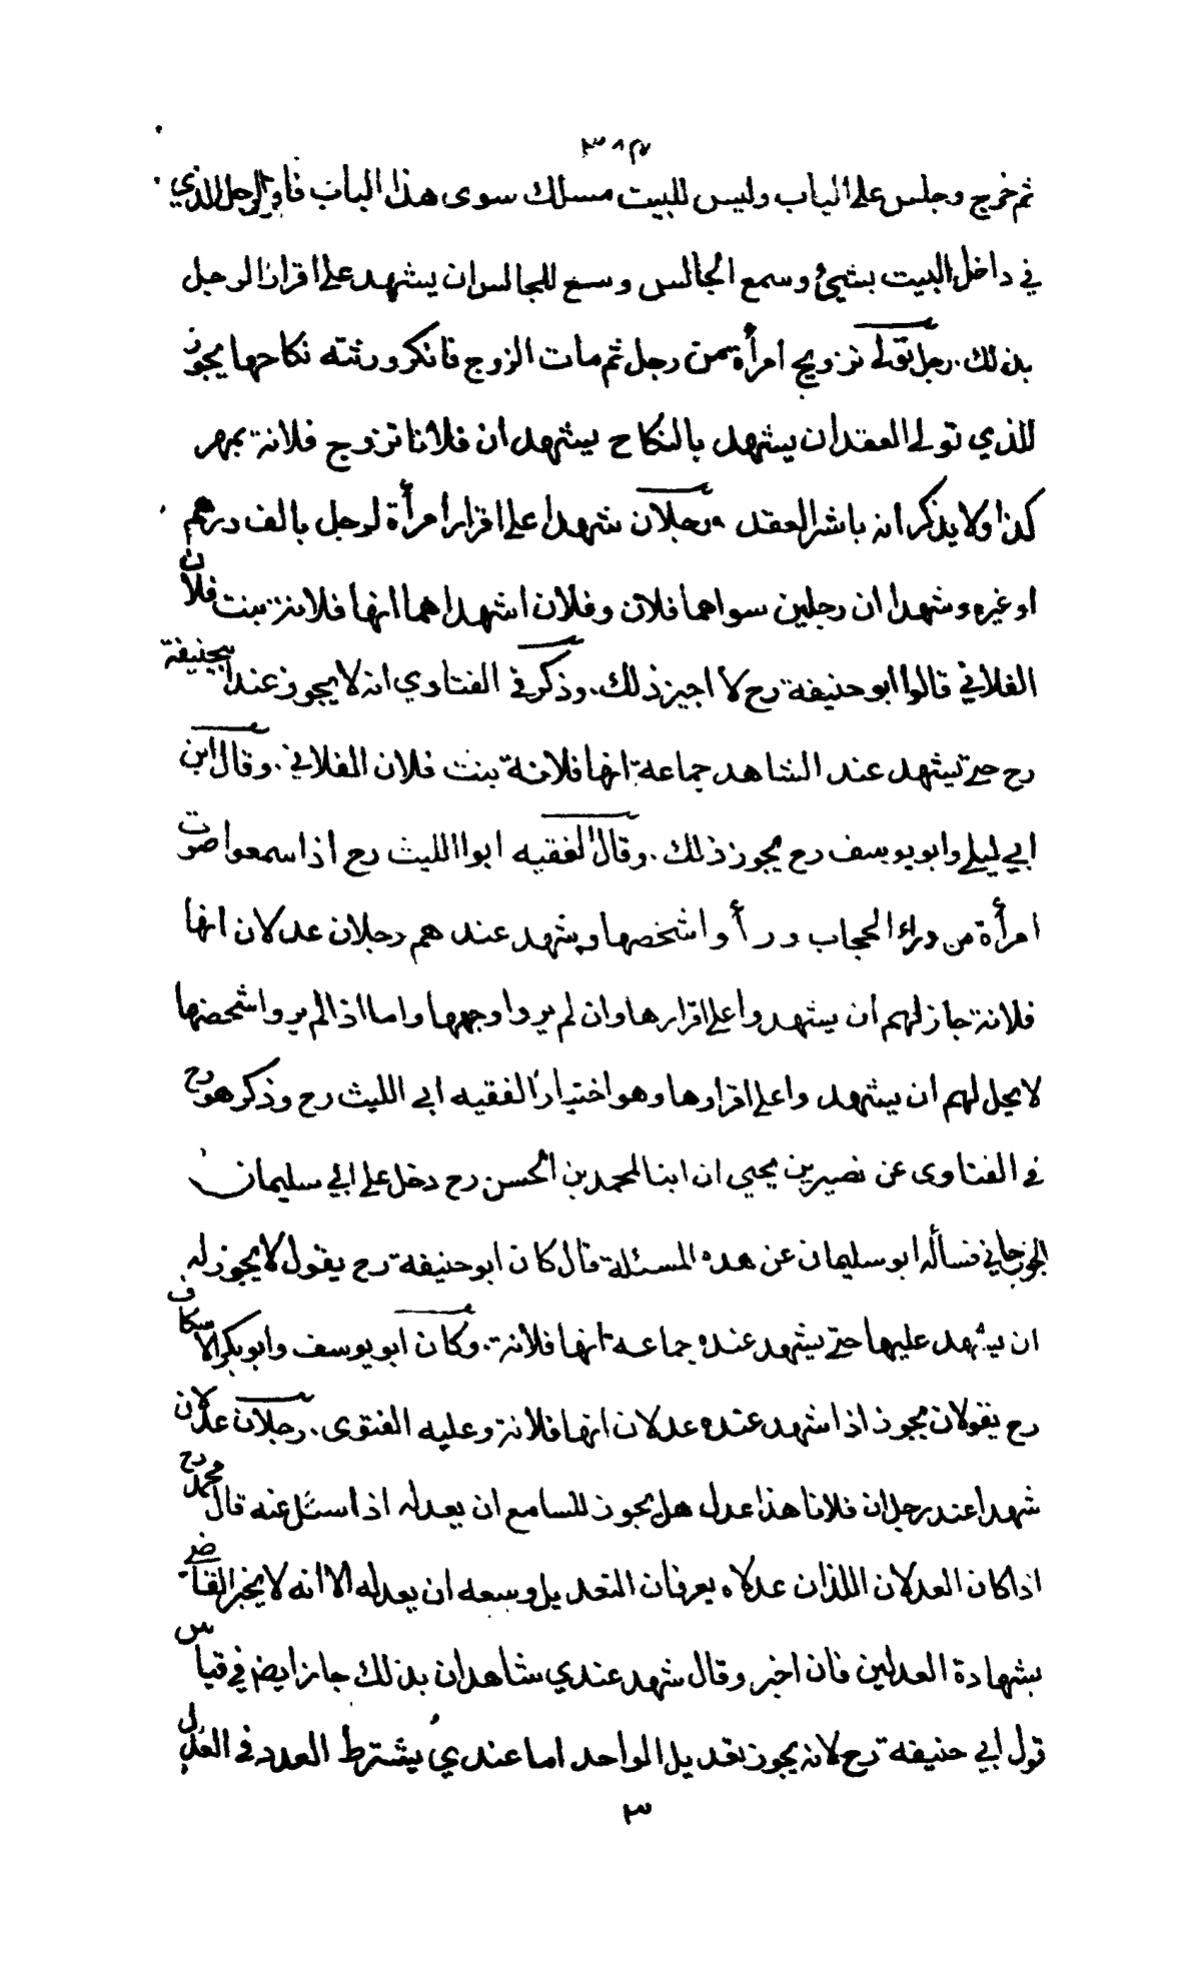 ٣٨٧
ثم خرج وجلس على الباب وليس للبيت مسلك سوى هذا الباب فاقر الرجل الذي
في داخل البيت بشيئ وسمع الجالس وسع للجالس ان يشهد على اقرار الرجل
بذلك. رجل تولى تزويج امرأة من رجل ثم مات الزوج فانكر ورثته نكاحها يجوز
للذي تولى العقد ان يشهد بالنكاح يشهد ان فلانا تزوج فلانة بمهر
كذا ولا يذكر انه باشر العقد. رجلان شهدا على اقرار امرأة لرجل بالف درهم
او غيره وشهدا ان رجلين سواهما فلان وفلان اشهداهما انها فلانة بنت فلان
الفلاني قالوا ابو حنيفة رح لا اجيز ذلك. وذكر في الفتاوي انه لا يجوز عند ابيحنيفة
رح حتى يشهد عند الشاهد جماعة انها فلانة بنت فلان الفلاني. وقال ابن
ابي ليلى وابو يوسف رح يجوز ذلك. وقال الفقيه ابوا الليث رح اذا سمعوا صوت
امرأة من وراء الحجاب ورأوا شخصها وشهد عندهم رجلان عدلان انها
فلانة جاز لهم ان يشهدوا على اقرارها وان لم يروا وجهها واما اذا لم يروا شخصها
لا يحل لهم ان يشهدوا على اقرارها وهو اختيار الفقيه ابي الليث رح وذكر هو رح
في الفتاوى عن نصير بن يحيي ان ابنا لمحمد بن الحسن رح دخل على ابي سليمان
الجوزجاني فسأله ابو سليمان عن هذه المسئلة قال كان ابو حنيفة رح يقول لا يجوز له
ان يشهد عليها حتى يشهد عنده جماعة انها فلانة. وكان ابو يوسف وابو بكر الاسكاف
رح يقولان يجوز اذا شهد عنده عدلان انها فلانة وعليه الفتوى. رجلان عدلان
شهدا عند رجل ان فلانا هذا عدل هل يجوز للسامع ان يعدله اذا سئل عنه قال محمد رح
اذا كان العدلان اللذان عدلاه يعرفان التعديل وسعه ان يعدله الا انه لا يخبر القاضي
بشهادة العدلين فان اخبر وقال شهد عندي شاهدان بذلك جاز ايضا في قياس
قول ابي حنيفة رح لانه يجوز تعديل الواحد اما عندي يشترط العدد في العدل
٣